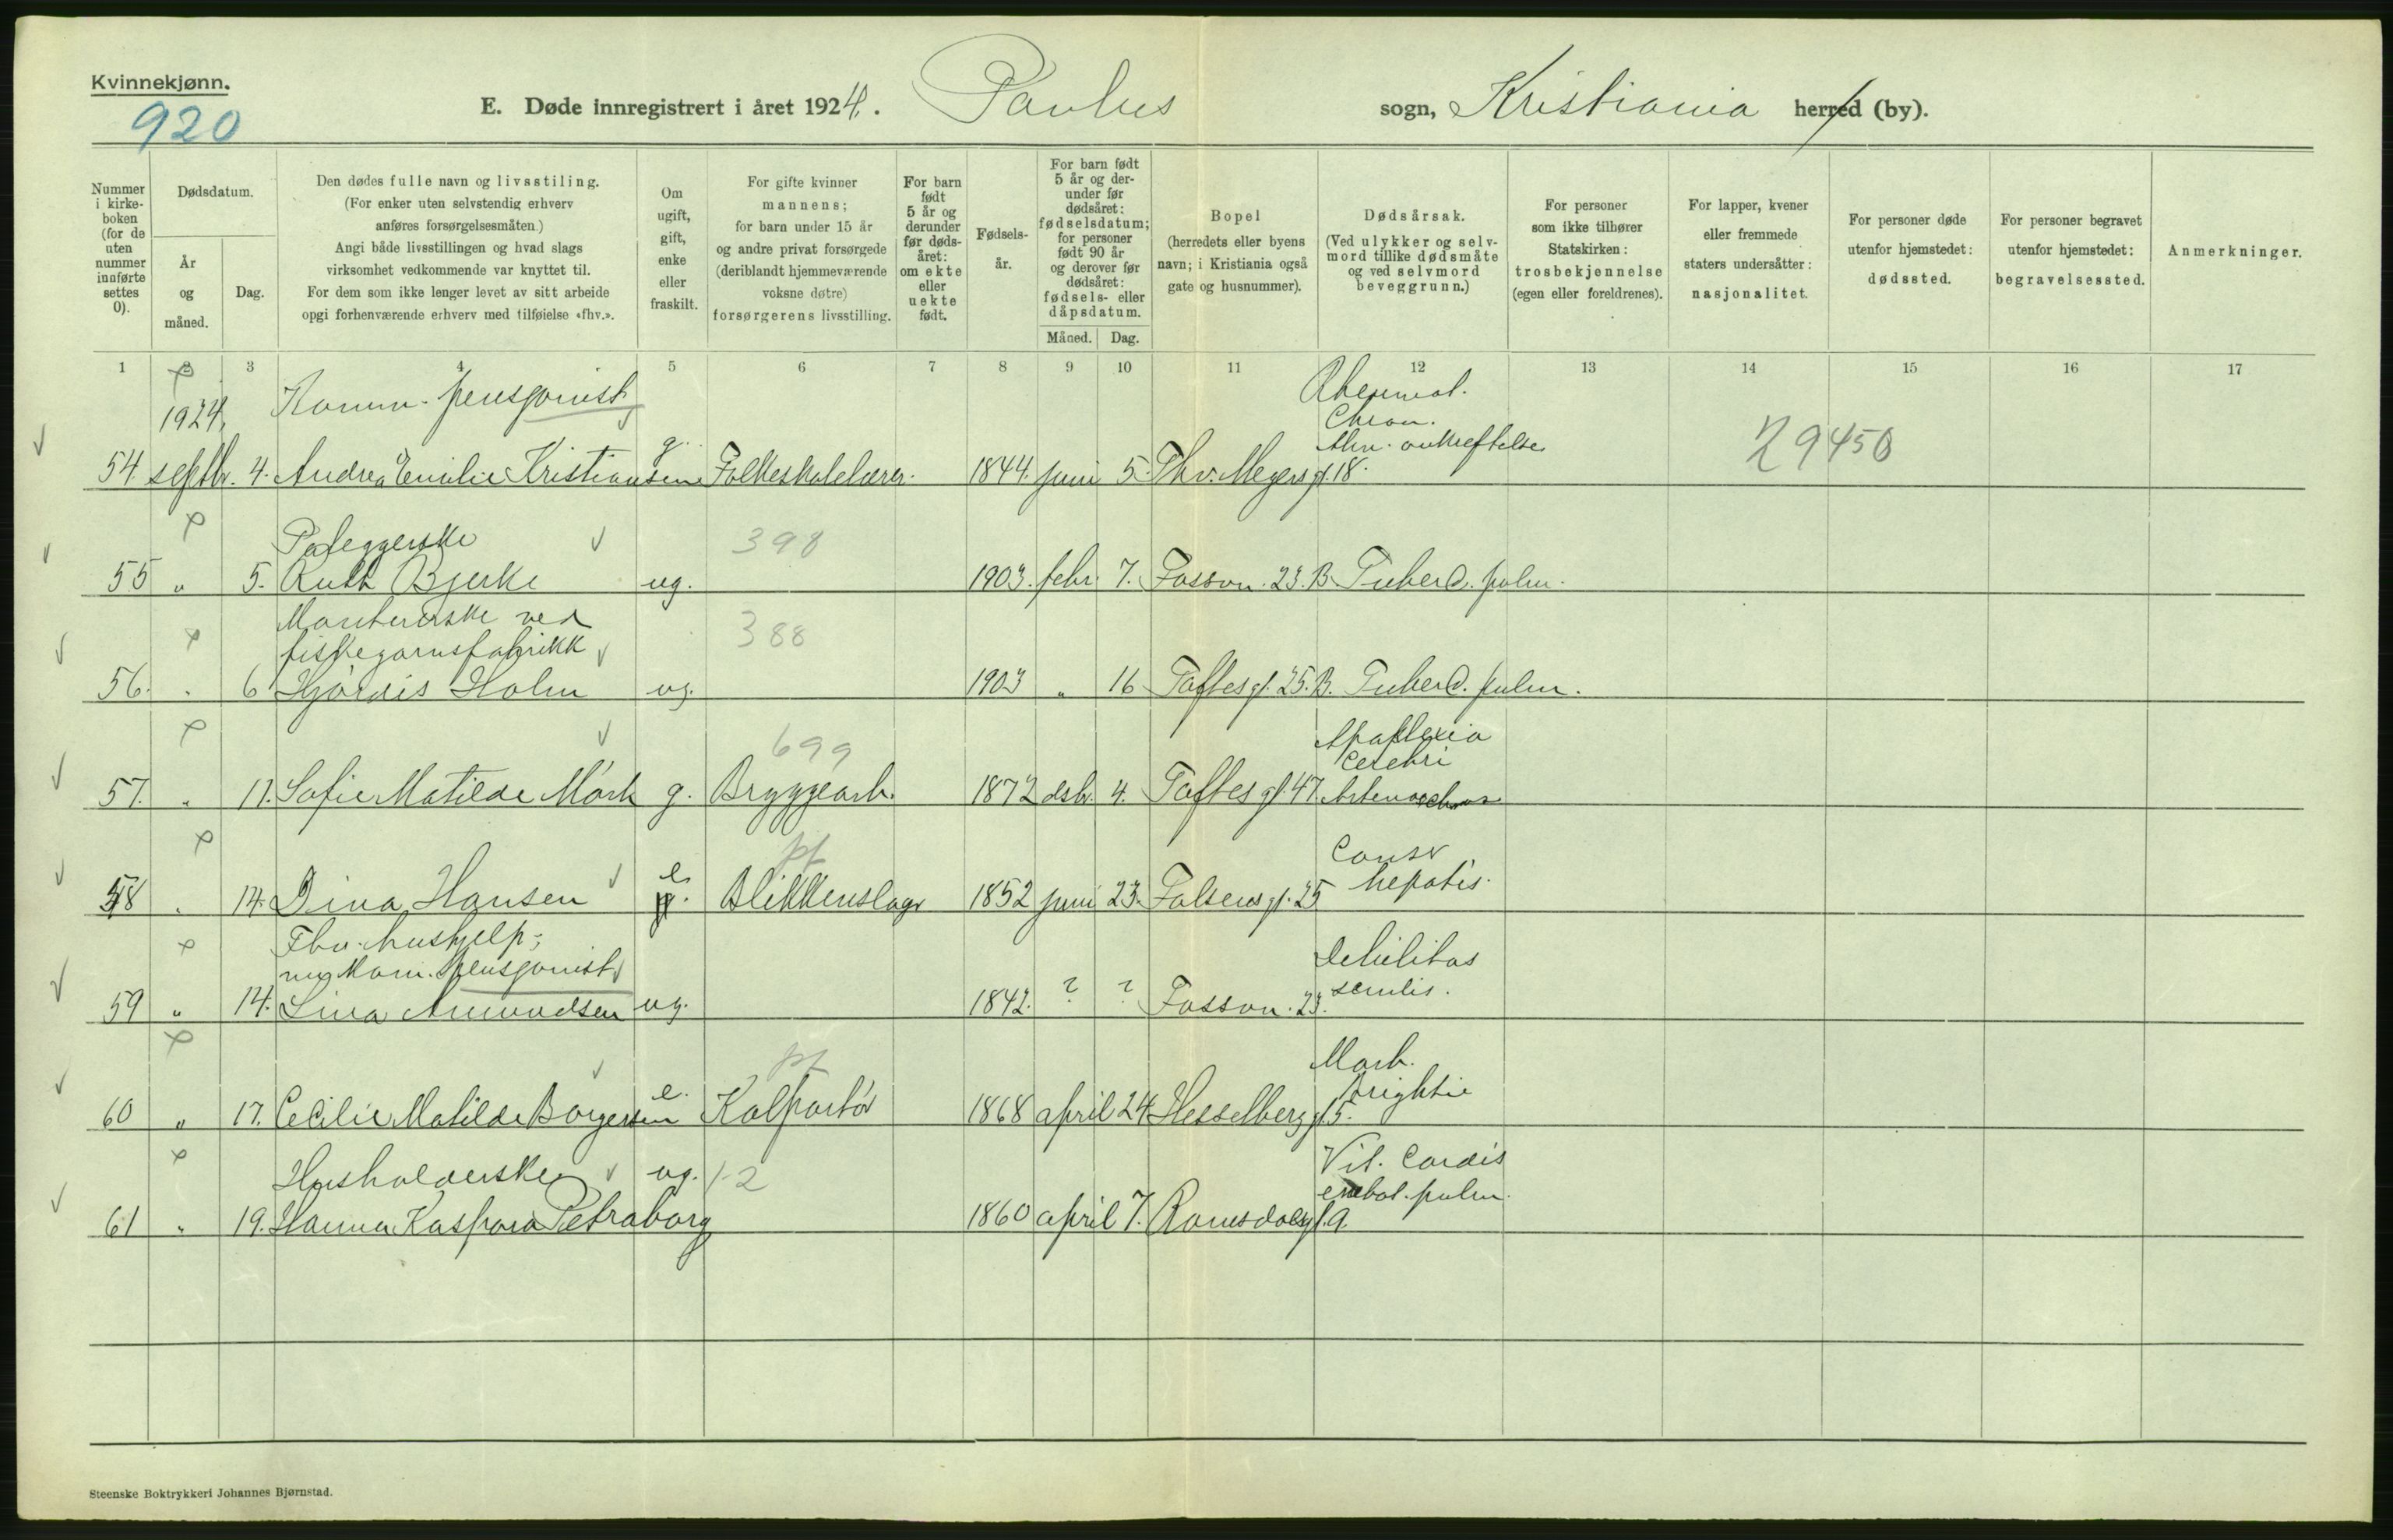 Kvinnekjønn.
920
E. Døde innregistrert i året 1924. Paulus sogn, Kristiania herred (by).
Nummer i kirkeboken (for de uten nummer innførte settes 0).
Dødsdatum.
År og måned.
Dag.
Den dødes fulle navn og livsstiling.
(For enker uten selvstendig erhverv
anføres forsørgelsesmåten.)
Angi både livsstillingen og hvad slags
virksomhet vedkommende var knyttet til.
For dem som ikke lenger levet av sitt arbeide
opgi forhenværende erhverv med tilføielse «fhv.».
Om ugift, gift, enke eller fraskilt.
For gifte kvinner
mannens;
for barn under 15 år
og andre privat forsørgede
(deriblandt hjemmeværende
voksne døtre)
forsørgerens livsstilling.
For barn født 5 år og derunder før dødsåret: om ekte eller uekte født.
Fødselsår.
For barn født 5 år og derunder før dødsåret: fødselsdatum; for personer født 90 år og derover før dødsåret: fødsels- eller dåpsdatum.
Måned. Dag.
Bopel
(herredets eller byens
navn; i Kristiania også
gate og husnummer).
Dødsårsak.
(Ved ulykker og selvmord tillike dødsmåte og ved selvmord beveggrunn.)
For personer
som ikke tilhører
Statskirken:
trosbekjennelse
(egen eller foreldrenes).
For lapper, kvener
eller fremmede
staters undersåtter:
nasjonalitet.
For personer døde
utenfor hjemstedet:
dødssted.
For personer begravet
utenfor hjemstedet:
begravelsessted.
Anmerkninger.
1 2 3 4 5 6 7 8 9 10 11 12 13 14 15 16 17
1924. Komm. pensjonist Rheumat.
Chron.
Alm. avkreftelse 29450
54. septbr. 4. Andrea Emilie Kristiansen g. Folkeskolelærer. 1844. juni 5. Thv. Meyers gt. 18.
Påleggerske 398
55 " 5. Ruth Bjerke ug. 1903. febr. 7. Fossvn. 23. B. Tuberc. pulm.
Montererske ved
fiskegarnsfabrikk 388
56. " 6 Hjørdis Holm ug. 1903 " 16 Toftes gt. 25. B. Tuberc. pulm.
699 Apoplexia
Cerebri
57. " 11. Sofie Matilde Mørk g. Bryggearb. 1872 dsbr. 4. Toftes gt. 47
pf Cancr
hepatis.
58 " 14. Dina Hansen e. Blikkenslager 1852 juni 23. Falsens gt. 25
Fhv. hushjelp;
nu kom. pensjonist Debilitas
senilis.
59 " 14. Lina Amundsen ug. 1842. ? ? Fossvn. 23.
pf Morb.
Brightii
60 " 17. Cecilie Matilde Borgersen e. Kolportør 1868 april 24 Hesselberg gt. 5.
Husholderske ug. 1-2 Vit. Cordis
embol. pulm.
61 " 19. Hanna Kaspara Petraborg 1860 april 7. Romsdals gt. 9.
Steenske Boktrykkeri Johannes Bjørnstad.